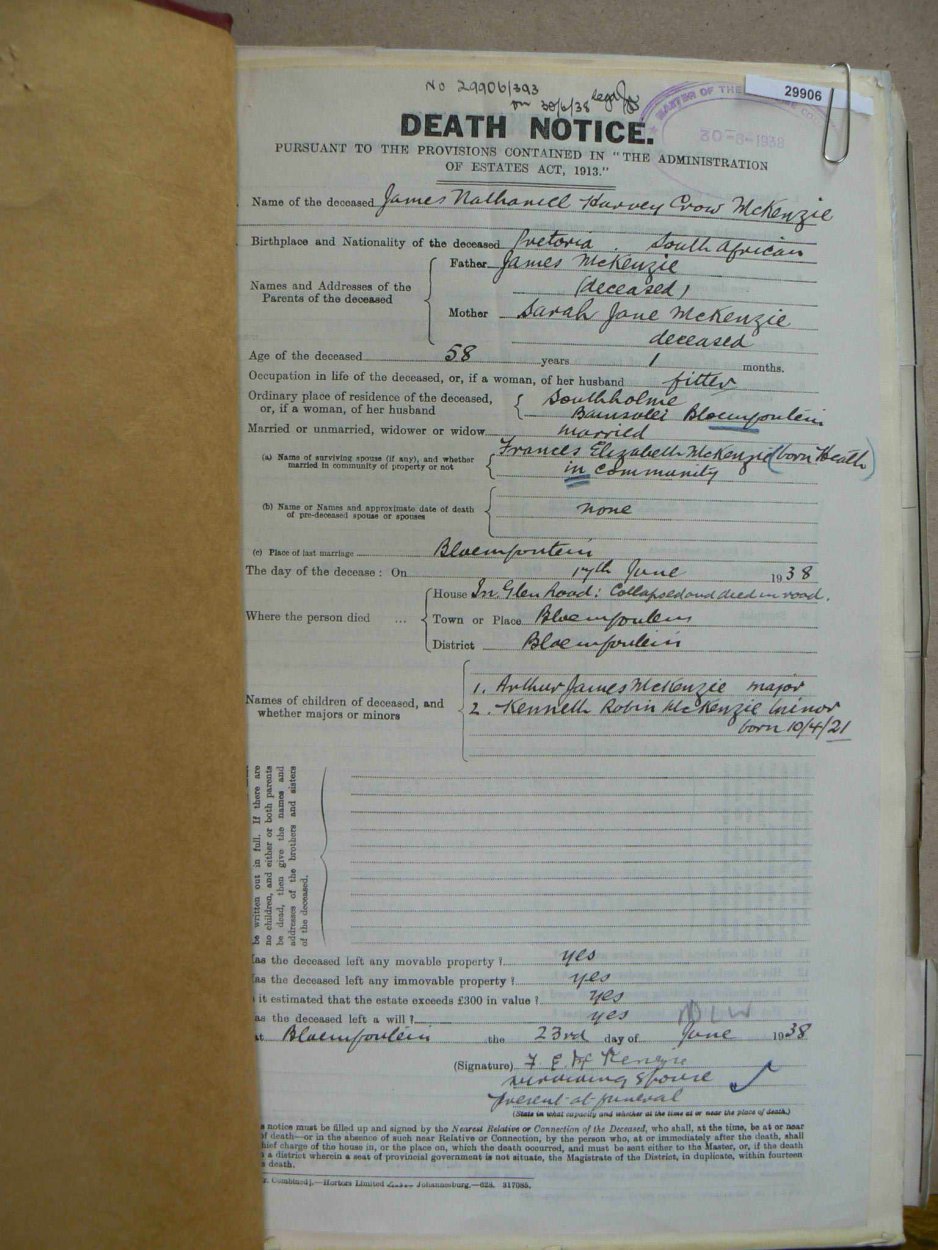 No 29906/393
on 30/6/38
29906
MASTER OF THE SUPREME COURT
30-6-1938
DEATH NOTICE.
PURSUANT TO THE PROVISIONS CONTAINED IN "THE ADMINISTRATION
OF ESTATES ACT, 1913."
Name of the deceased James Nathaniell Harvey Crow McKenzie
Birthplace and Nationality of the deceased Pretoria. South African
Names and Addresses of the Parents of the deceased
Father James McKenzie
(deceased)
Mother Sarah Jane McKenzie
deceased
Age of the deceased 58 years 1 months.
Occupation in life of the deceased, or, if a woman, of her husband fitter
Ordinary place of residence of the deceased, Southholme
or, if a woman, of her husband Bloemfontein
Married or unmarried, widower or widow married
(a) Name of surviving spouse (if any), and whether Frances Elizabeth McKenzie (born Heath)
married in community of property or not in Community
(b) Name or Names and approximate date of death none
of pre-deceased spouse or spouses
(c) Place of last marriage Bloemfontein
The day of the decease: On 17th June 1938
Where the person died ...
House In Glen Road: Collapsed and died in road.
Town or Place Bloemfontein
District Bloemfontein
Names of children of deceased, and
whether majors or minors
1. Arthur James McKenzie major
2. Kenneth Robin McKenzie minor
born 10/4/21
be written out in full. If there are
no children, and either or both parents
be dead, then give the names and
addresses of the brothers and sisters
of the deceased.
as the deceased left any movable property? yes
as the deceased left any immovable property? yes
it estimated that the estate exceeds £300 in value? yes
as the deceased left a will? yes
at Bloemfontein the 23rd day of June 1938
(Signature) F E McKenzie
surviving Spouse
present at funeral
(State in what capacity and whether at the time at or near the place of death.)
notice must be filled up and signed by the Nearest Relative or Connection of the Deceased, who shall, at the time, be at or near
of death—or in the absence of such near Relative or Connection, by the person who, at or immediately after the death, shall
hief charge of the house in, or the place on, which the death occurred, and must be sent either to the Master, or, if the death
a district wherein a seat of provincial government is not situate, the Magistrate of the District, in duplicate, within fourteen
death.
Combined].—Hortors Limited Johannesburg.—628. 317085.